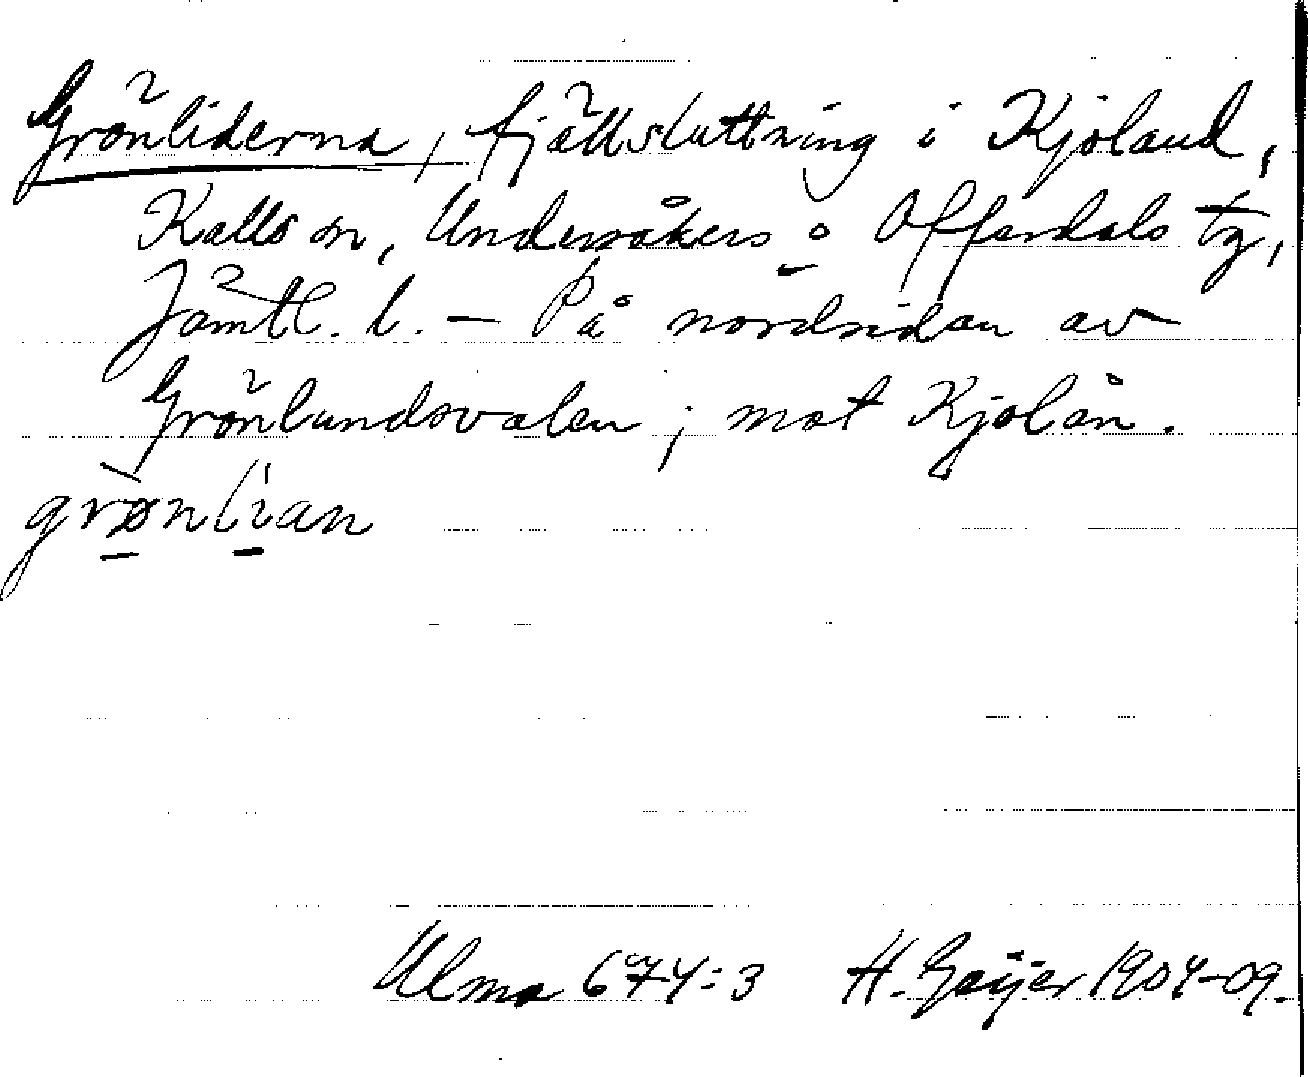 Grönliderna, fjällsluttning i Kjoland,
Kalls sn, Undersåkers o Offerdals tg,
Jämtl. l. – På nordsidan av
Grönlundsvalen, mot Kjolån.
grønlian
Ulma 674:3 H. Geijer 1904-09.